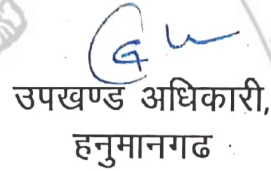 उपखण्ड अधिकारी,
हनुमानगढ